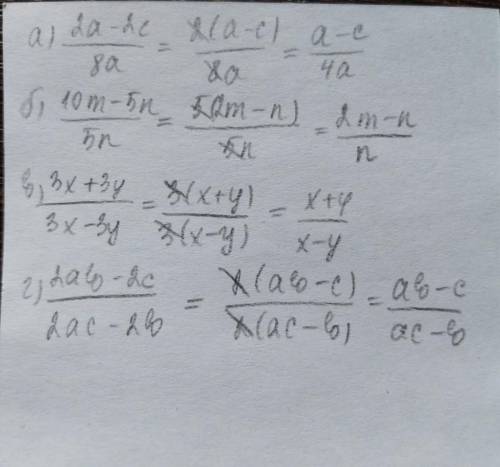 а) (2a-2c)/(8a) = (2(a-c))/(8a) = (a-c)/(4a)
б) (10m-5n)/(5n) = (5(2m-n))/(5n) = (2m-n)/(n)
в) (3x+3y)/(3x-3y) = (3(x+y))/(3(x-y)) = (x+y)/(x-y)
г) (2ab-2c)/(2ac-2b) = (2(ab-c))/(2(ac-b)) = (ab-c)/(ac-b)